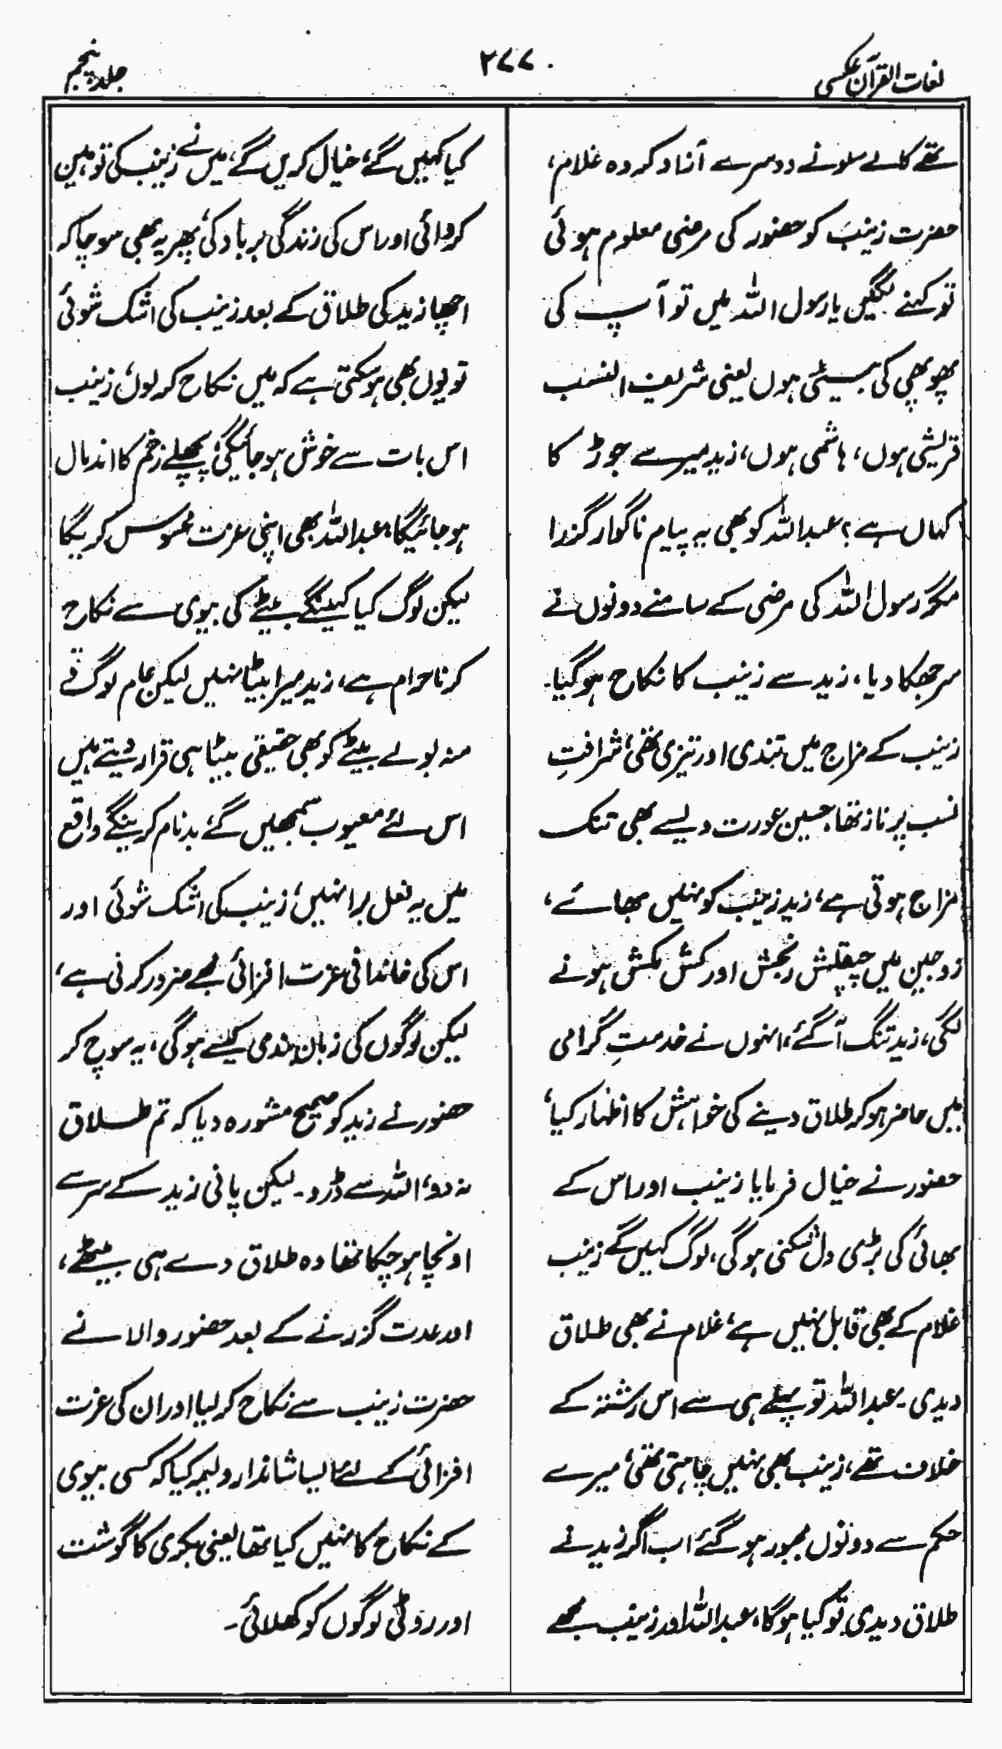 لغات القرآن عکسی
۲۷۷
جلد پنجم
تھے کالے سلونے دوسرے آزاد کردہ غلام،
حضرت زینب کو حضور کی مرضی معلوم ہوئی
تو کہنے لگیں یا رسول اللہ میں تو آپ کی
پھوپھی کی بیٹی ہوں یعنی شریف النسب
قریشی ہوں، ہاشمی ہوں، زید میرے جوڑ کا
کہاں ہے؟ عبداللہ کو بھی یہ پیام ناگوار گزرا
مگر رسول اللہ کی مرضی کے سامنے دونوں نے
سر جھکا دیا، زید سے زینب کا نکاح ہوگیا۔
زینب کے مزاج میں تندی اور تیزی تھی، شرافتِ
نسب پر ناز تھا، حسین عورت ویسے بھی تنک
مزاج ہوتی ہے، زید زینب کو نہیں بھائے،
زوجین میں چپقلش رنجش اور کش مکش ہونے
لگی، زید تنگ آگئے، انہوں نے خدمتِ گرامی
میں حاضر ہوکر طلاق دینے کی خواہش کا اظہار کیا،
حضور نے خیال فرمایا زینب اور اس کے
بھائی کی بڑی دل شکنی ہوگی، لوگ کہیں گے زینب
غلام کے بھی قابل نہیں ہے، غلام نے بھی طلاق
دیدی۔ عبداللہ تو پہلے ہی سے اس رشتہ کے
خلاف تھے، زینب بھی نہیں چاہتی تھی، میرے
حکم سے دونوں مجبور ہوگئے اب اگر زید نے
طلاق دیدی تو کیا ہوگا، عبداللہ اور زینب مجھے
کیا کہیں گے، خیال کریں گے، میں نے زینب کی توہین
کروائی اور اس کی زندگی برباد کی، پھر یہ بھی سوچا کہ
اچھا زید کی طلاق کے بعد زینب کی اشک شوئی
تو یوں بھی ہوسکتی ہے کہ میں نکاح کرلوں، زینب
اس بات سے خوش ہوجائیگی، پچھلے زخم کا اندمال
ہوجائیگا، عبداللہ بھی اپنی عزت محسوس کریگا
لیکن لوگ کیا کہینگے بیٹے کی بیوی سے نکاح
کرنا حرام ہے، زید میرا بیٹا نہیں لیکن عام لوگ تو
منہ بولے بیٹے کو بھی حقیقی بیٹا ہی قرار دیتے ہیں
اس لئے معیوب سمجھیں گے، بدنام کرینگے واقع
میں یہ فعل برا نہیں، زینب کی اشک شوئی اور
اس کی خاندانی عزت افزائی مجھے ضرور کرنی ہے،
لیکن لوگوں کی زبان بندی کیسے ہوگی، یہ سوچ کر
حضور نے زید کو صحیح مشورہ دیا کہ تم طلاق
نہ دو، اللہ سے ڈرو۔ لیکن پانی زید کے سر سے
اونچا ہوچکا تھا وہ طلاق دے ہی بیٹھے،
اور عدت گزرنے کے بعد حضور والا نے
حضرت زینب سے نکاح کرلیا اور ان کی عزت
افزائی کے لئے ایسا شاندار ولیمہ کیا کہ کسی بیوی
کے نکاح کا نہیں کیا تھا یعنی بکری کا گوشت
اور روٹی لوگوں کو کھلائی۔